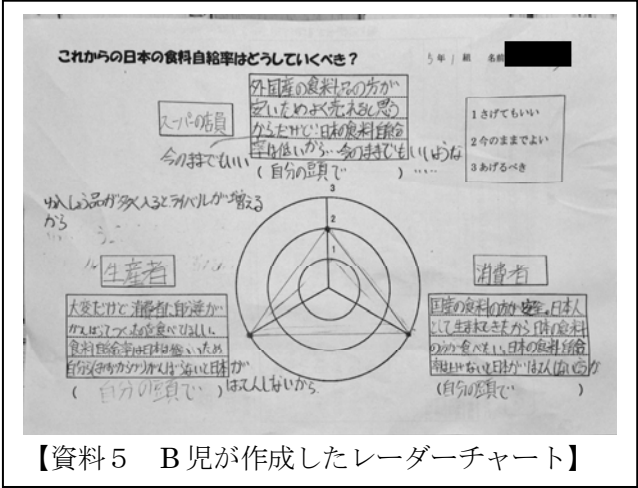 これからの日本の食料自給率はどうしていくべき？
5年1組 名前
外国産の食料品の方が
安いためよく売れると思う
からだけど、日本の食料自給
率は低いから…今のままでもいいような
(自分の頭で) ……
スーパーの店員
今のままでもいい
1 さげてもいい
2 今のままでよい
3 あげるべき
ゆにゅう品が多く入るとライバルが増える
から
3
2
1
生産者
大変だけど消費者に自分達が
がんばってつくった物を食べてほしい。
食料自給率は日本は低いため
自分らはがんばらないと日本が
はってんしないから。
(自分の頭で)
消費者
国産の食料の方が安全。日本人
として生まれてきたから日本の食料
の方が食べたい。日本の食料自給
率は上げないと日本が
(自分の頭で)
【資料５ Ｂ児が作成したレーダーチャート】